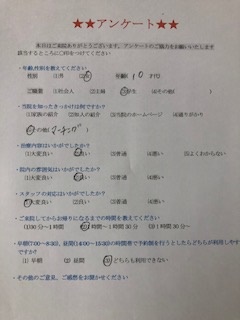 ★★アンケート★★
本日はご来院ありがとうございます。アンケートのご協力をお願いいたします
該当するところに○印をつけてください
・年齢,性別を教えてください
性別 ①男 ②女 年齢( 10 才代)
①職業 ①社会人 ②主婦 ③学生 ④その他( )
・当院を知ったきっかけは何ですか?
①家族の紹介 ②知人の紹介 ③当院のホームページ ④通りがかり
⑤その他( )
・治療内容はいかがでしたか?
①大変良い ②良い ③普通 ④悪い ⑤よくわからない
・院内の雰囲気はいかがでしたか?
①大変良い ②良い ③普通 ④悪い
・スタッフの対応はいかがでしたか?
①大変良い ②良い ③普通 ④悪い
・ご来院してからお帰りになるまでの時間を教えてください
①30分~1時間 ②1時間~1時間30分 ③1時間30分~
・早朝(7:00~8:30)、昼間(14:00~15:30)の時間帯で予約診療を行うとしたらどちらが利用しやす
ですか?
①早朝 ②昼間 ③どちらも利用できない
・その他のご意見、ご感想をお聞かせください